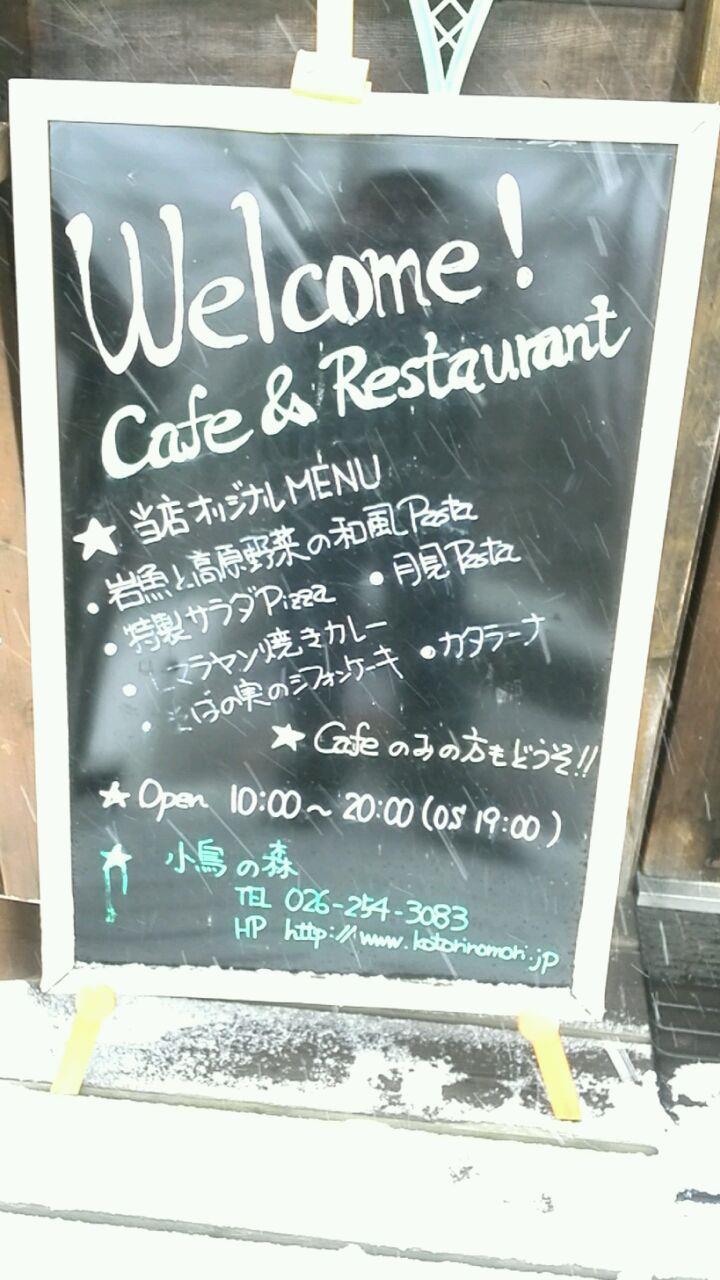 Welcome!
Cafe & Restaurant
★ 当店オリジナルMENU
・岩魚と高原野菜の和風Pasta
・特製サラダPizza ・月見Pasta
・マラヤン焼きカレー
・はの実のシフォンケーキ ・カタラーナ
★ Cafeのみの方もどうぞ!!
★ Open 10:00〜20:00(OS 19:00)
★ 小鳥の森
TEL 026-254-3083
HP http://www.kotorinomori.jp